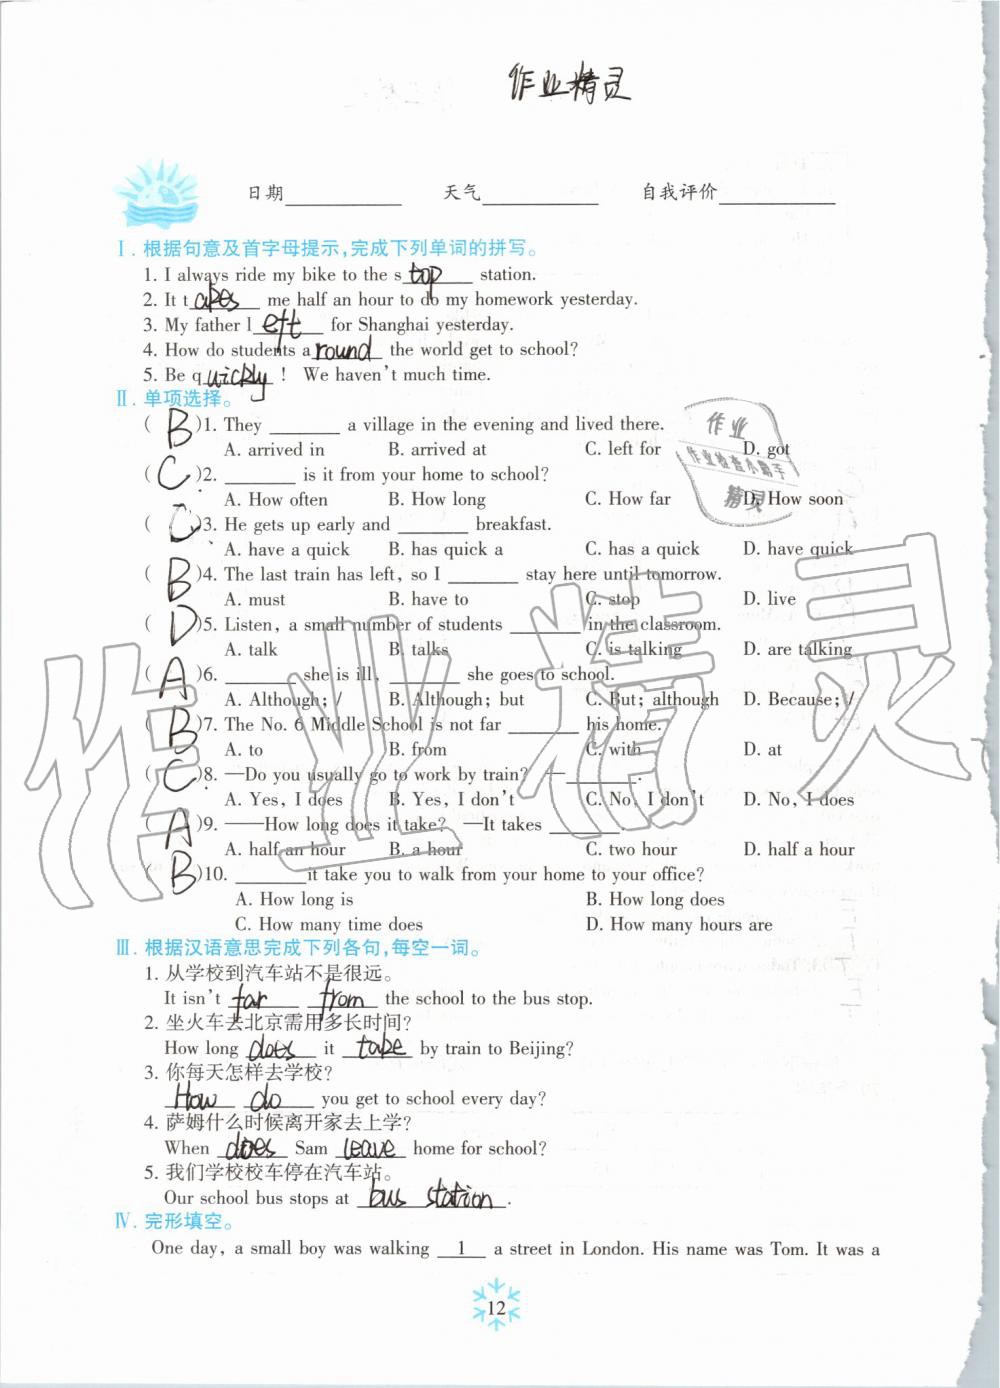 作业精灵
日期 天气 自我评价
Ⅰ. 根据句意及首字母提示,完成下列单词的拼写。
1. I always ride my bike to the stop station.
2. It takes me half an hour to do my homework yesterday.
3. My father left for Shanghai yesterday.
4. How do students around the world get to school?
5. Be quickly! We haven't much time.
Ⅱ. 单项选择。
( B )1. They ______ a village in the evening and lived there.
A. arrived in B. arrived at C. left for D. got
( C )2. ______ is it from your home to school?
A. How often B. How long C. How far D. How soon
( C )3. He gets up early and ______ breakfast.
A. have a quick B. has quick a C. has a quick D. have quick
( B )4. The last train has left, so I ______ stay here until tomorrow.
A. must B. have to C. stop D. live
( D )5. Listen, a small number of students ______ in the classroom.
A. talk B. talks C. is talking D. are talking
( A )6. ______ she is ill, ______ she goes to school.
A. Although; / B. Although; but C. But; although D. Because; /
( B )7. The No. 6 Middle School is not far ______ his home.
A. to B. from C. with D. at
( C )8. —Do you usually go to work by train? —______.
A. Yes, I does B. Yes, I don't C. No, I don't D. No, I does
( A )9. ——How long does it take? —It takes ______.
A. half an hour B. a hour C. two hour D. half a hour
( B )10. ______it take you to walk from your home to your office?
A. How long is B. How long does
C. How many time does D. How many hours are
Ⅲ. 根据汉语意思完成下列各句,每空一词。
1. 从学校到汽车站不是很远。
It isn't far from the school to the bus stop.
2. 坐火车去北京需用多长时间?
How long does it take by train to Beijing?
3. 你每天怎样去学校?
How do you get to school every day?
4. 萨姆什么时候离开家去上学?
When does Sam leave home for school?
5. 我们学校校车停在汽车站。
Our school bus stops at bus station.
Ⅳ. 完形填空。
One day, a small boy was walking 1 a street in London. His name was Tom. It was a
12
作业
作业检查小帮手
精灵
作业精灵